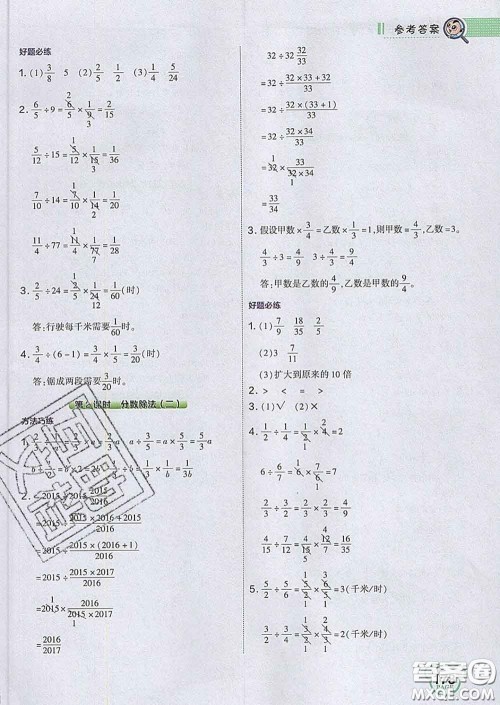 参考答案
好题必练
1. (1) 3/8 5 (2) 1/5 1/2 (3) 1/4
2. 6/5÷9=6/5×1/9=2/15
5/12÷15=5/12×1/15=1/36
7/10÷14=7/10×1/14=1/20
11/4÷77=11/4×1/77=1/28
3. 2/5÷24=2/5×1/24=1/60(时)
答:行驶每千米需要1/60时。
4. 3/4÷(6-1)=3/4×1/5=3/20(时)
答:锯成两段需要3/20时。
课时 分数除法(二)
方法巧练
=2015÷(2015×2016+2015)/2016
=2015÷2015×(2016+1)/2016
=2015÷(2015×2017)/2016
=2015×2016/(2015×2017)
=2016/2017
32÷32 32/33
=32÷(32×33+32)/33
=32÷32×(33+1)/33
=32÷(32×34)/33
=32×33/(32×34)
=33/34
3. 假设甲数×3/4=乙数×1/3=1,则甲数=4/3,乙数=3。
4/3÷3=4/9 3÷4/3=9/4
答:甲数是乙数的4/9,乙数是甲数的9/4。
好题必练
1. (1) 7/9 18/35 2/5
(2) 3 7/11
(3) 扩大到原来的10倍
2. > < = >
3. (1)√ (2)×
4. 1/2÷1/4=1/2×4=2
6/7÷6/7=6/7×7/6=1
2/3÷3/5=2/3×5/3=10/9
4/15÷7/12=4/15×12/7=16/35
5. 5/2÷5/6=5/2×6/5=3(千米/时)
3/2÷3/4=3/2×4/3=2(千米/时)
PAGE
答案圈
MXQE.COM